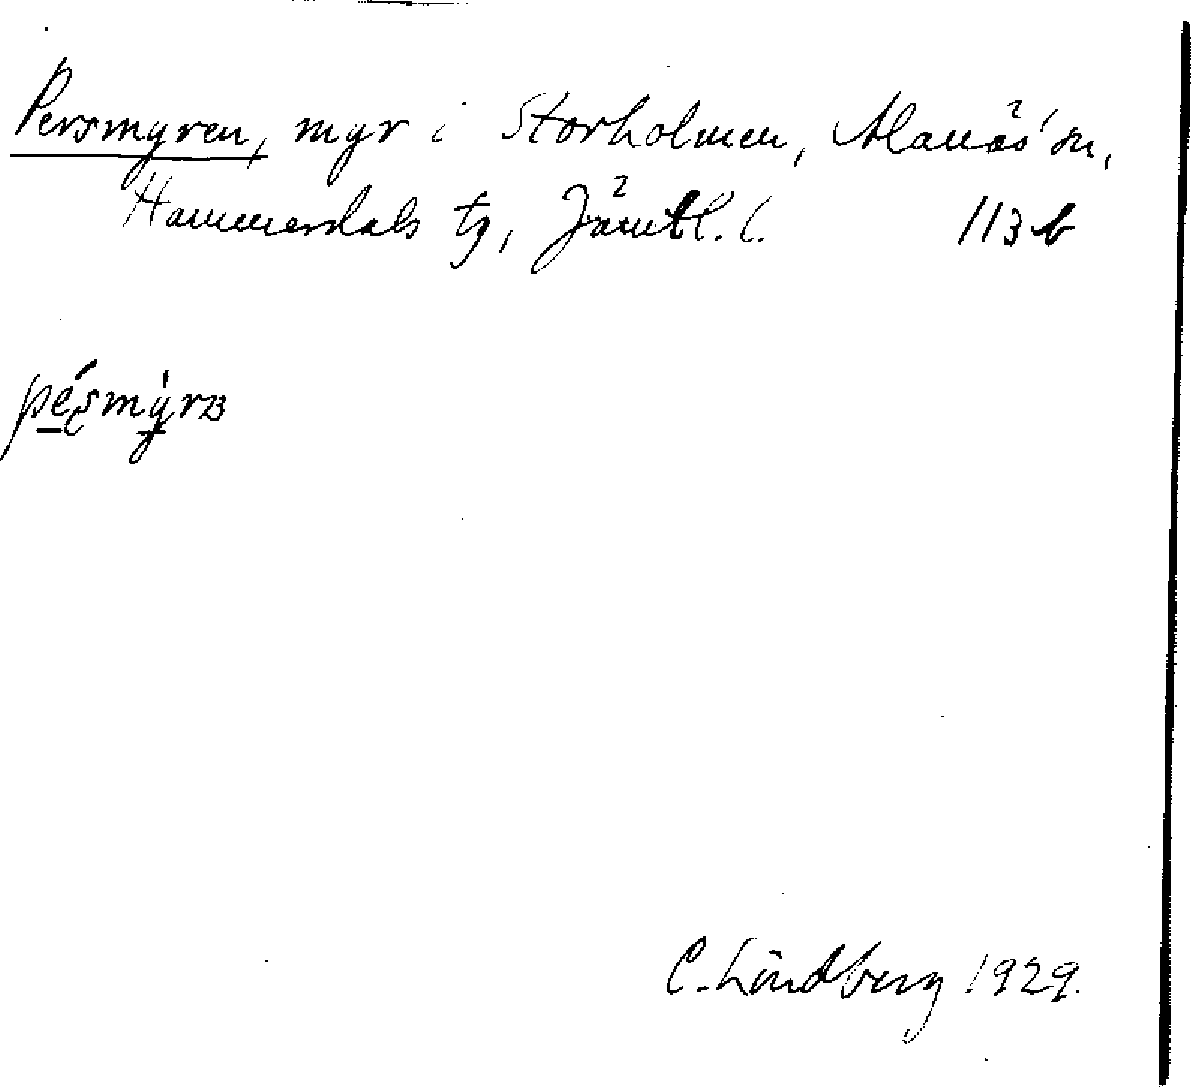 Persmyren, myr i Storholmen, Alanäs sn,
Hammerdals tg, Jämtl. l. 113 b
C. Lindberg 1929.